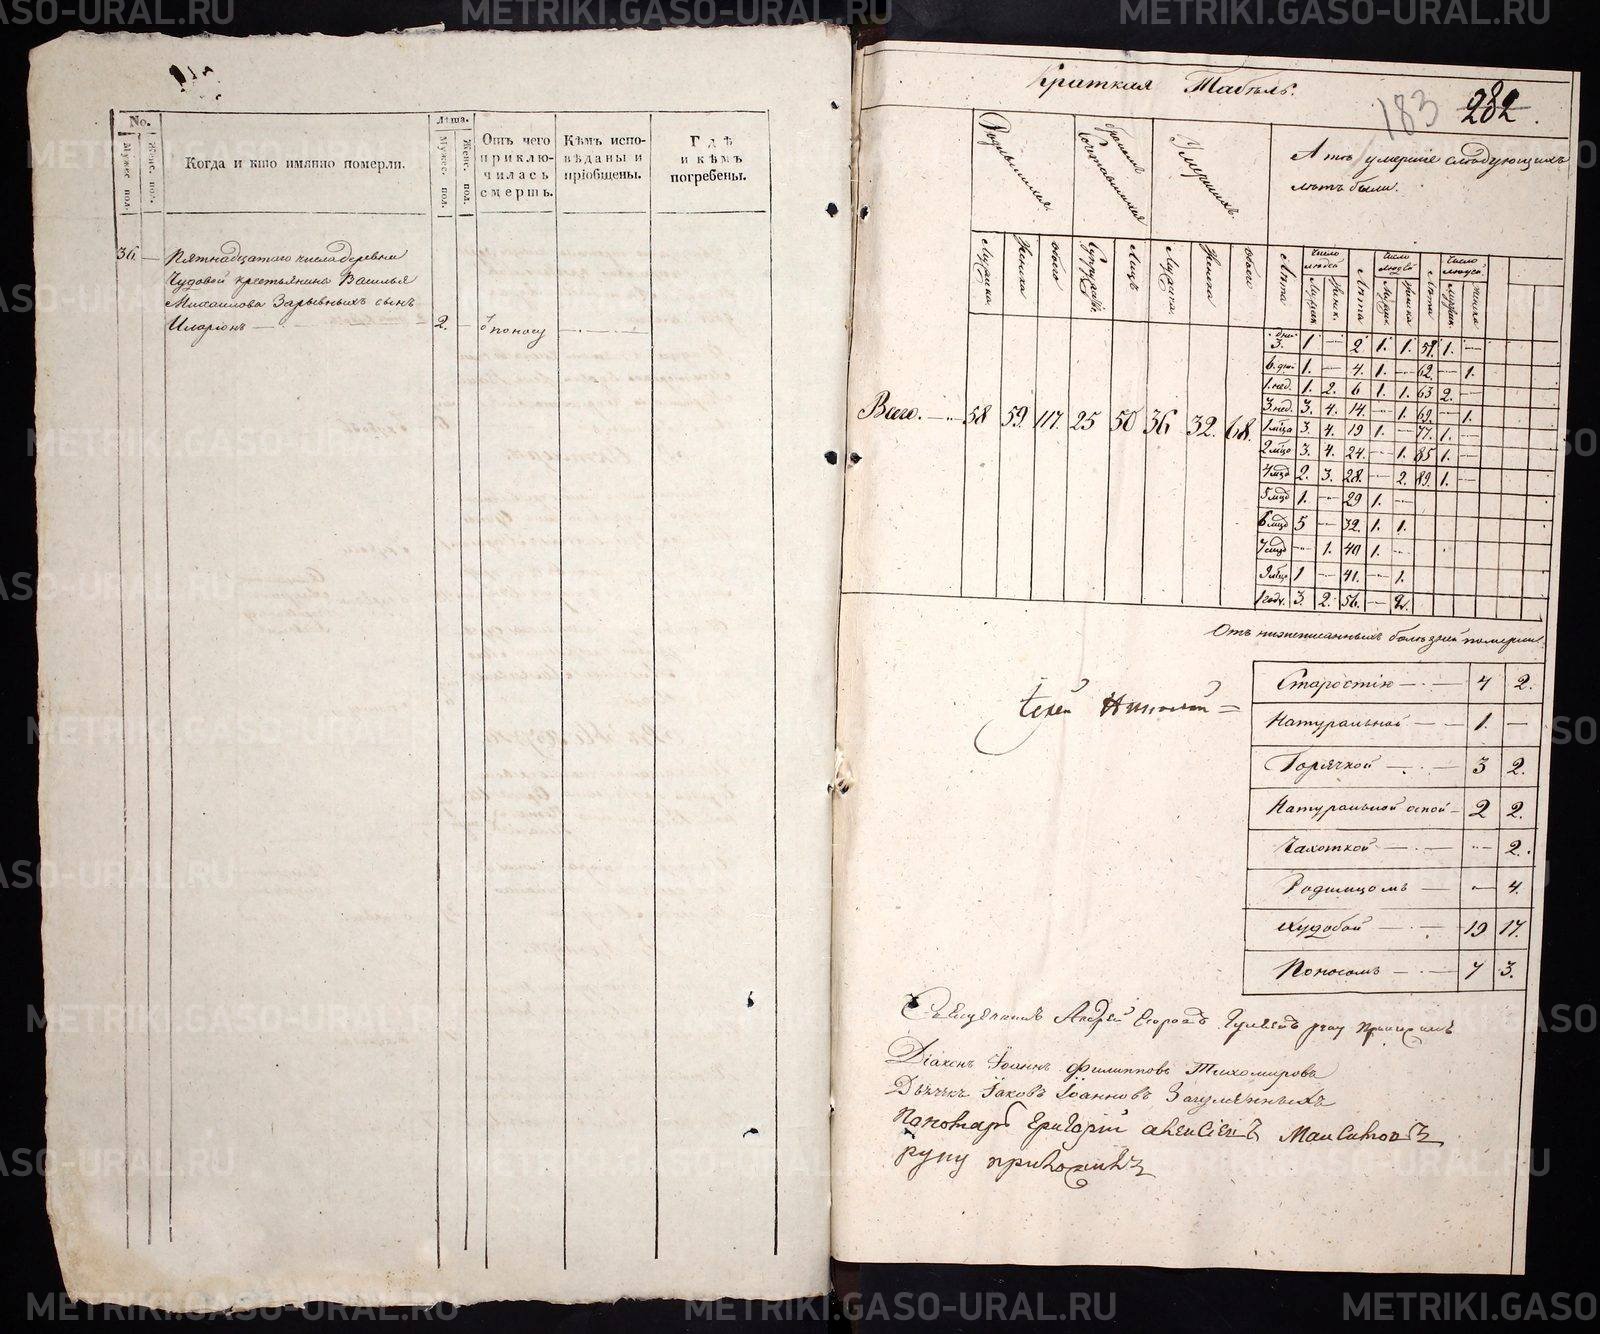 METRIKI.GASO-URAL.RU
No.
Мужес. пол.
Женс. пол.
Когда и кто имянно померли.
Лѣта.
Мужес. пол.
Женс. пол.
Отъ чего приклю-
чилась
смерть.
Кѣмъ испо-
вѣданы и
пріобщены.
Гдѣ
и кѣмъ
погребены.
36 —
Пятнадцатаго числа деревни
Чудовой крестьянина Василья
Михаилова Зарывныхъ сынъ
Иларіонъ — 2. — ѿ поносу —
Краткая Табель.
183 282.
Родившихся
Бракомъ Сочетавшихся
Умершихъ
А тѣ умершіе слѣдующихъ
лѣтъ были.
Мужеска. Женска обоего Лицъ Мужеска. Женска обоего
Лѣта Число людей Лѣта Число людей Лѣта Число людей
дни 3. 1. — 2. 1. 1. 59. 1. —
6. дн. 1. — 4. 1. — 62. — 1.
1. нед. 1. 2. 6 1. 1. 63 2. —
3. нед. 3. 4. 14. — 1. 69. — 1.
1 мца 3. 4. 19 1. — 77. 1. —
2 мцо 3. 4. 24. — 1. 85 1. —
4 мцо 2. 3. 28. — 2. 89. 1. —
5 мцо 1. — 29 1. —
6 мцо 5 — 32. 1. 1.
7 мцо — 1. 40 1. —
9 мцо 1 — 41. — 1.
1 году. 3. 2. 56. — 2.
Всего. — 58 59. 117. 25 50 36 32. 68.
Отъ нижеписанныхъ болѣзней померли.
Старостію — 4 2.
Натуральной — 1. —
Горячкой — 3 2.
Натуральной оспой — 2 2.
Чахоткой — — 2.
Родимцомъ — — 4.
Худобой — 19 17.
Поносомъ — 7 3.
Іерей Николай
Священникъ Андрей Егоровъ руку приложилъ
Діаконъ Іоаннъ Филипповъ Тихомировъ
Дьячекъ Іаковъ Іоанновъ Загуменныхъ
Пономарь Григорій Алексіевъ
руку приложилъ
METRIKI.GASO-URAL.RU